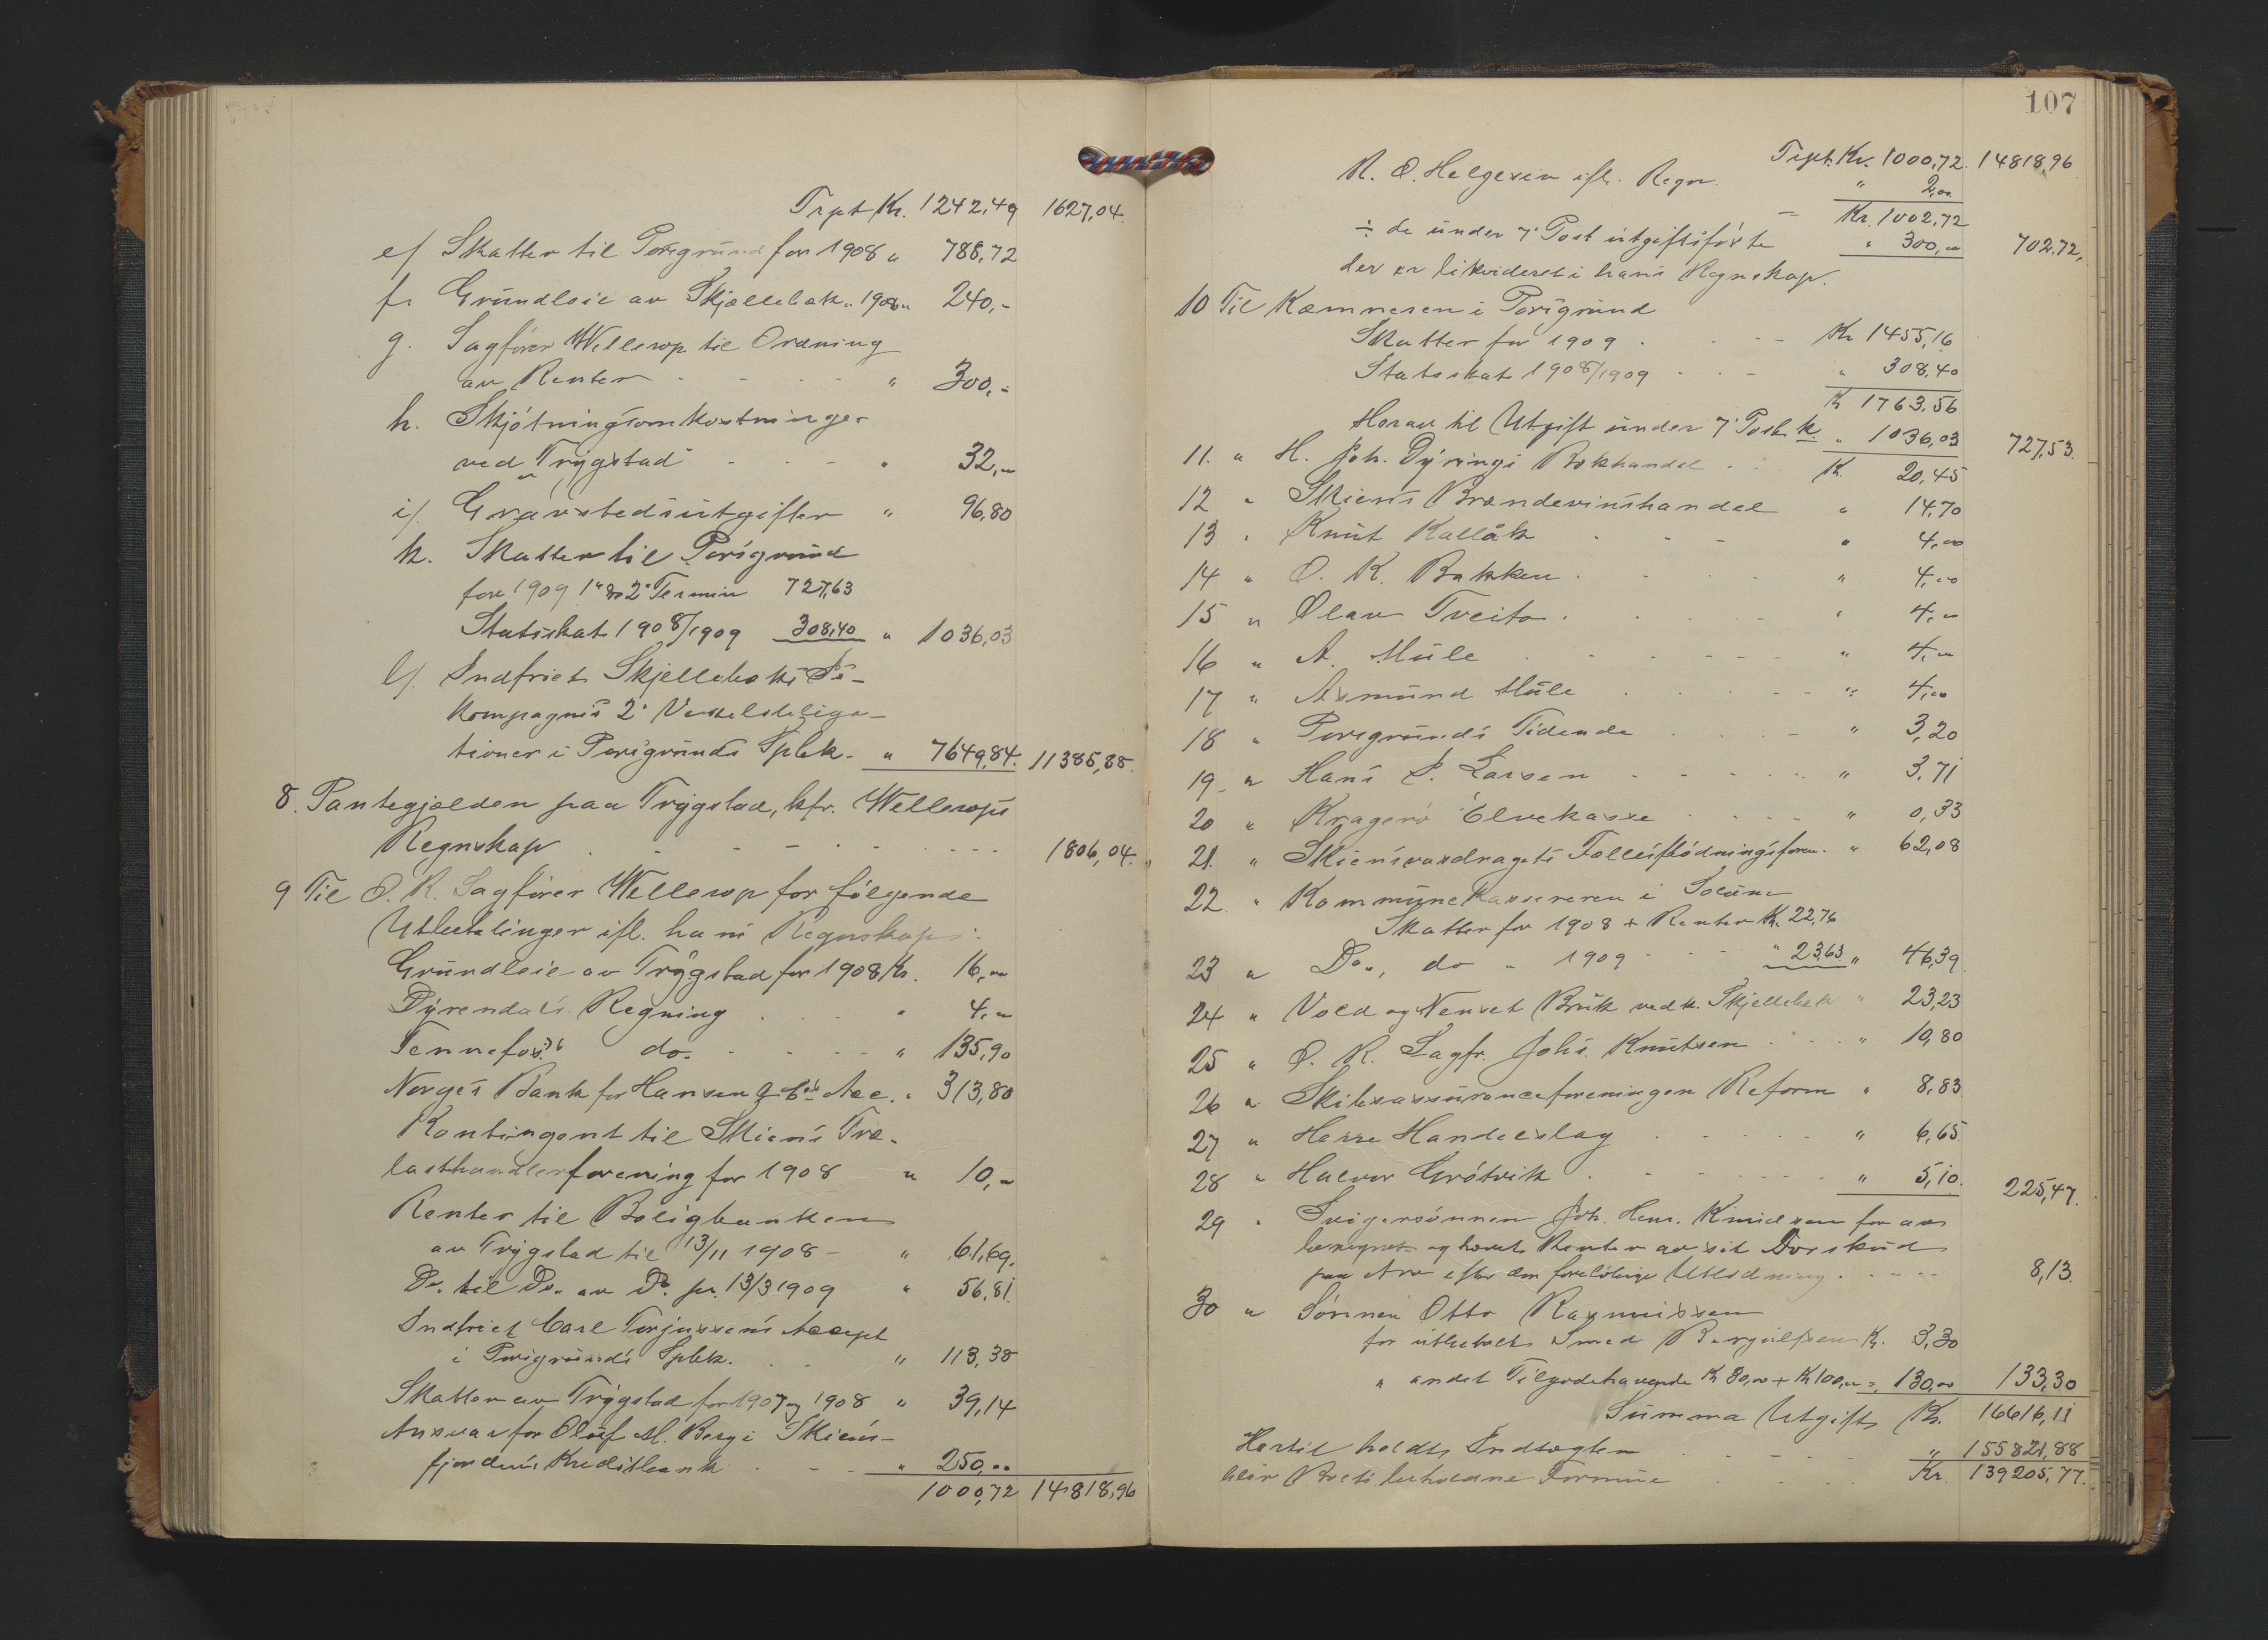 Trpt Kr. 1242,49 1627,04.
e/ Skatter til Porsgrund for 1908 " 788,72
f. Grundleie av Skjællebæk " 1908 " 240,-
g. Sagfører Wellerop til Ordning
av Renter - - - " 300,-
h. Skjötningsomkostninger
ved Trygstad - - - " 32,00
i/. Gravstedsutgifter " 96,80
k. Skatter til Porsgrund
for 1909 1ste & 2' Termin 727,63
Statsskat 1908/1909 308,40 " 1036,03
l/. Indfriet Skjellebæks
Kompagnis 2' Vekselobliga-
tioner i Porsgrunds Spbk. " 7649,84. 11385,88.
8. Pantegjælden paa Trygstad, kfr. Wellerops
Regnskap - - - - 1806,04.
9 Til O. R. Sagfører Wellerop for følgende
Utbetalinger ifl. hans Regnskap:
Grundleie av Trygstad for 1908 Kr. 16,00
Dyrendals Regning . . . " 4,00
Tennefos's do. - - - " 135,90
Norges Bank for Hansen & Co's Acc. " 313,80
Kontingent til Skiens Træ-
lasthandlerforening for 1908 " 10,-
Renter til Boligbanken
av Trygstad til 13/11 1908 - " 61,69.
Do. til Do. av Do. pr. 13/3 1909 " 56,81.
Indfriet Carl Torjussens Accept
i Porsgrunds Spbk. . . " 113,38
Skatter av Trygstad for 1907 og 1908 " 39,14
Ansvar for Oluf M. Berg i Skiens-
fjordens Kreditbank . - - " 250,00
1000,72 14818,96
107
Trpt. Kr. 1000,72. 14818,96
N. O. Helgesen ifl. Regn. " 2,00
Kr. 1002,72
÷ de under 7' Post utgiftsførte " 300,00 702,72.
der er likvideret i hans Regnskap.
10 Til Kæmneren i Porsgrund
Skatter for 1909 . . - - Kr 1455,16
Statsskat 1908/1909 - - - " 308,40
Kr 1763,56
Herav til Utgift under 7' Post k. " 1036,03 727,53.
11. " H. Joh. Dyrings Bokhandel . . Kr. 20,45
12 " Skiens Brændevinshandel " 14,70
13 " Knut Kallåk - - - " 4,00
14 " O. K. Bakken . - - - " 4,00
15 " Olav Tveito . - - - " 4,00
16 " A. Mule - - - - " 4,00
17 " Asmund Mule . - - - " 4,00
18 " Porsgrunds Tidende . - - - " 3,20
19 " Hans P. Larsen - - - - " 3,71
20 " Kragerø Elvekasse . - - - " 0,33
21. " Skiensvasdragets Fællesflødningsforen. " 62,08
22. " Kommunekassereren i Solum
Skatter for 1908 + Renter Kr. 22,76
23 " Do., do " 1909 - - " 23,63 " 46,39
24 " Vold og Nenset Bruk vedk. Skjellebæk " 23,23
25 " O. R. Sagfr. Johs. Knutsen . . . " 10,80
26 " Skibsassuranceforeningen Reform " 8,83
27 " Herre Handelslag - - - - " 6,65
28 " Halvor Grötvik . - - - " 5,10. 225,47.
29 " Svigersønnen Joh. Henr. Knudsen for av
og hævet Renter av sit Forskud
paa Arv efter den foreløbige Utlodning . - - - 8,13.
30 " Sønnen Otto Rasmussen
for utbetalt Smed Kr. 3,30
" andet Tilgodehavende Kr 30,00 + Kr 100,00 = " 130,00 133,30
Summa Utgift Kr. 16616,11
Hertil holdt Indtægten - - - - " 155821,88
blir Boets beholdne Formue . - - - Kr. 139205,77.